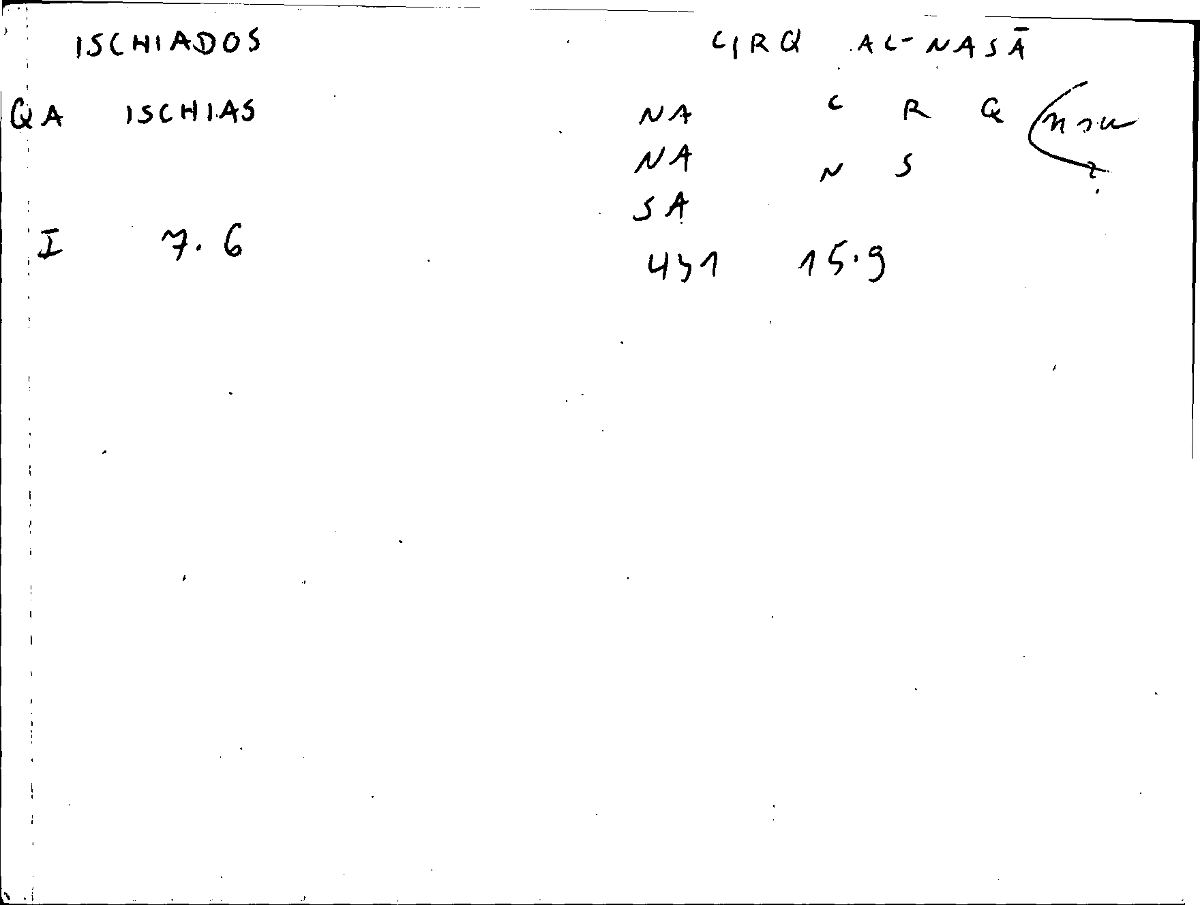 ISCHIADOS CIRQ AL-NASĀ
QA ISCHIAS NA C R Q
NA N S
SA
I 7.6 431 15.9